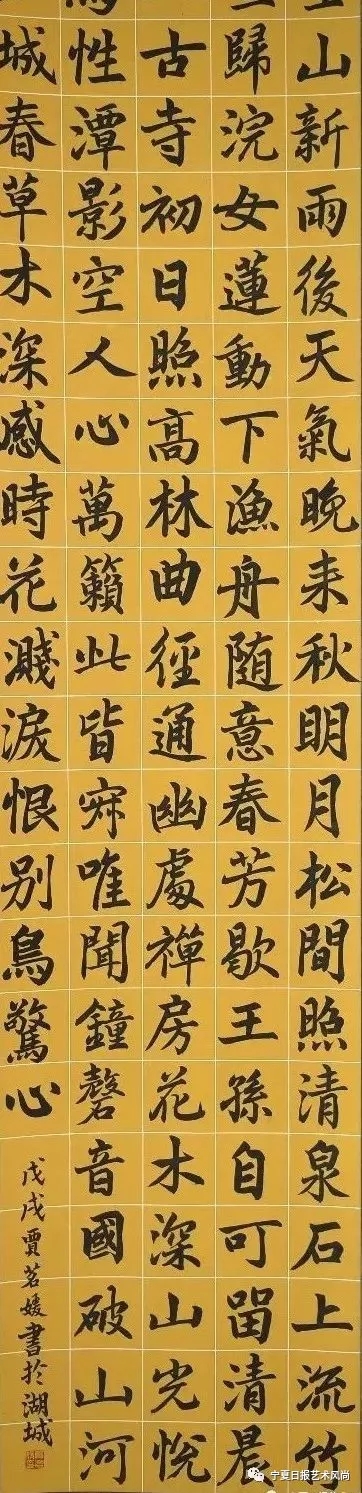 山新雨後天氣晚来秋明月松間照清泉石上流竹
歸浣女蓮動下漁舟随意春芳歇王孫自可留清晨
古寺初日照高林曲徑通幽處禪房花木深山光悦
性潭影空人心萬籟此皆寂唯聞鐘磬音國破山河
城春草木深感時花濺淚恨别鳥驚心
戊戌賈茗媛書於湖城
宁夏日报艺术风尚